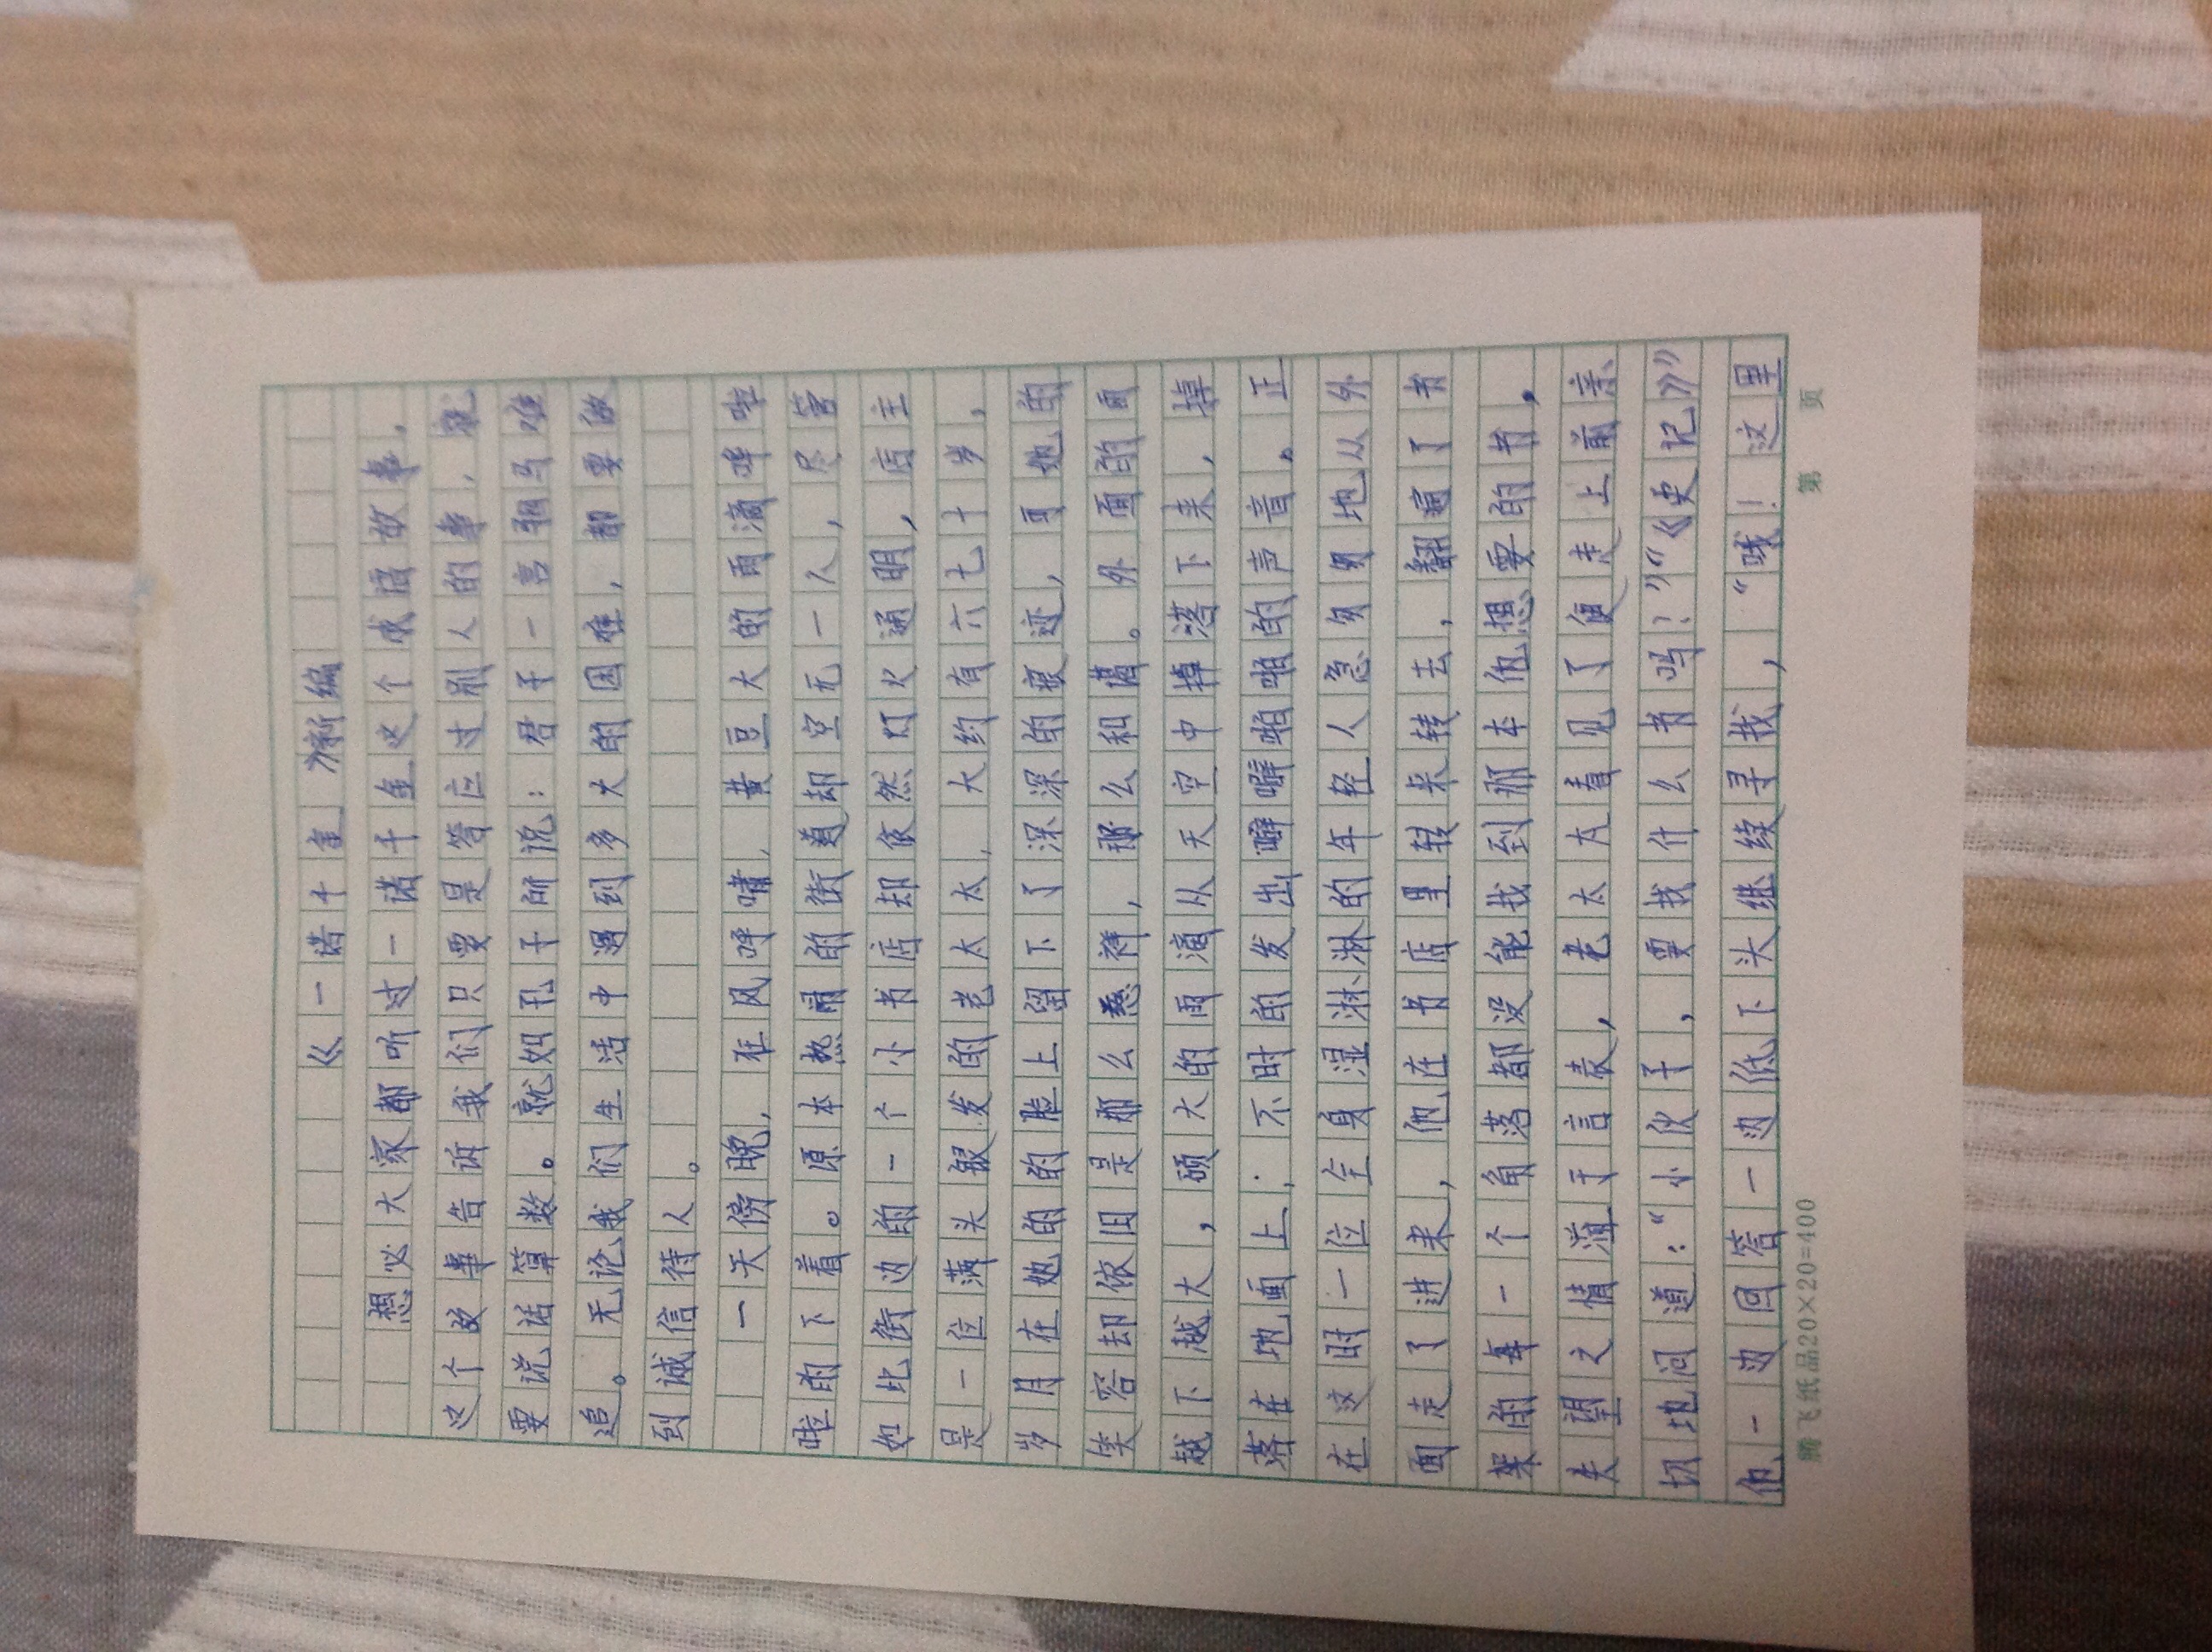 《一诺千金》新编
想必大家都听过一诺千金这个成语故事,
这个故事告诉我们只要是答应过别人的事,就
要说话算数。就如孔子所说:君子一言驷马难
追。无论我们生活中遇到多大的困难,都要做
到诚信待人。
一天傍晚,狂风呼啸,黄豆大的雨滴哗啦
啦的下着。原本热闹的街道却空无一人,尽管
如此街边的一个小书店却依然灯火通明,店主
是一位满头银发的老太太,大约有六七十岁,
岁月在她的的脸上留下了深深的痕迹,可她的
笑容却依旧是那么慈祥,那么和蔼。外面的雨
越下越大,硕大的雨滴从天空中掉落下来,掉
落在地面上,不时的发出噼噼啪啪的声音。正
在这时一位全身湿淋淋的年轻人急匆匆地从外
面走了进来,他在书店里转来转去,翻遍了书
架的每一个角落都没能找到那本他想要的书,
失望之情溢于言表,老太太看见了便走上前亲
切地问道:“小伙子,要找什么书吗?”“《史记》”
他一边回答一边低下头继续寻找,“哦!这里
腾飞纸品20×20=400
第 页